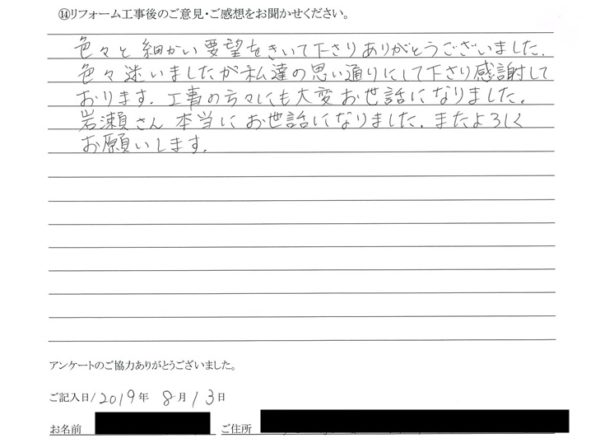 ⑭リフォーム工事後のご意見・ご感想をお聞かせください。
色々と細かい要望をきいて下さりありがとうございました.
色々迷いましたが私達の思い通りにして下さり感謝して
おります.工事の方々にも大変お世話になりました.
岩瀬さん本当にお世話になりました.またよろしく
お願いします.
アンケートのご協力ありがとうございました。
ご記入日/2019年 8月13日
お名前 ご住所